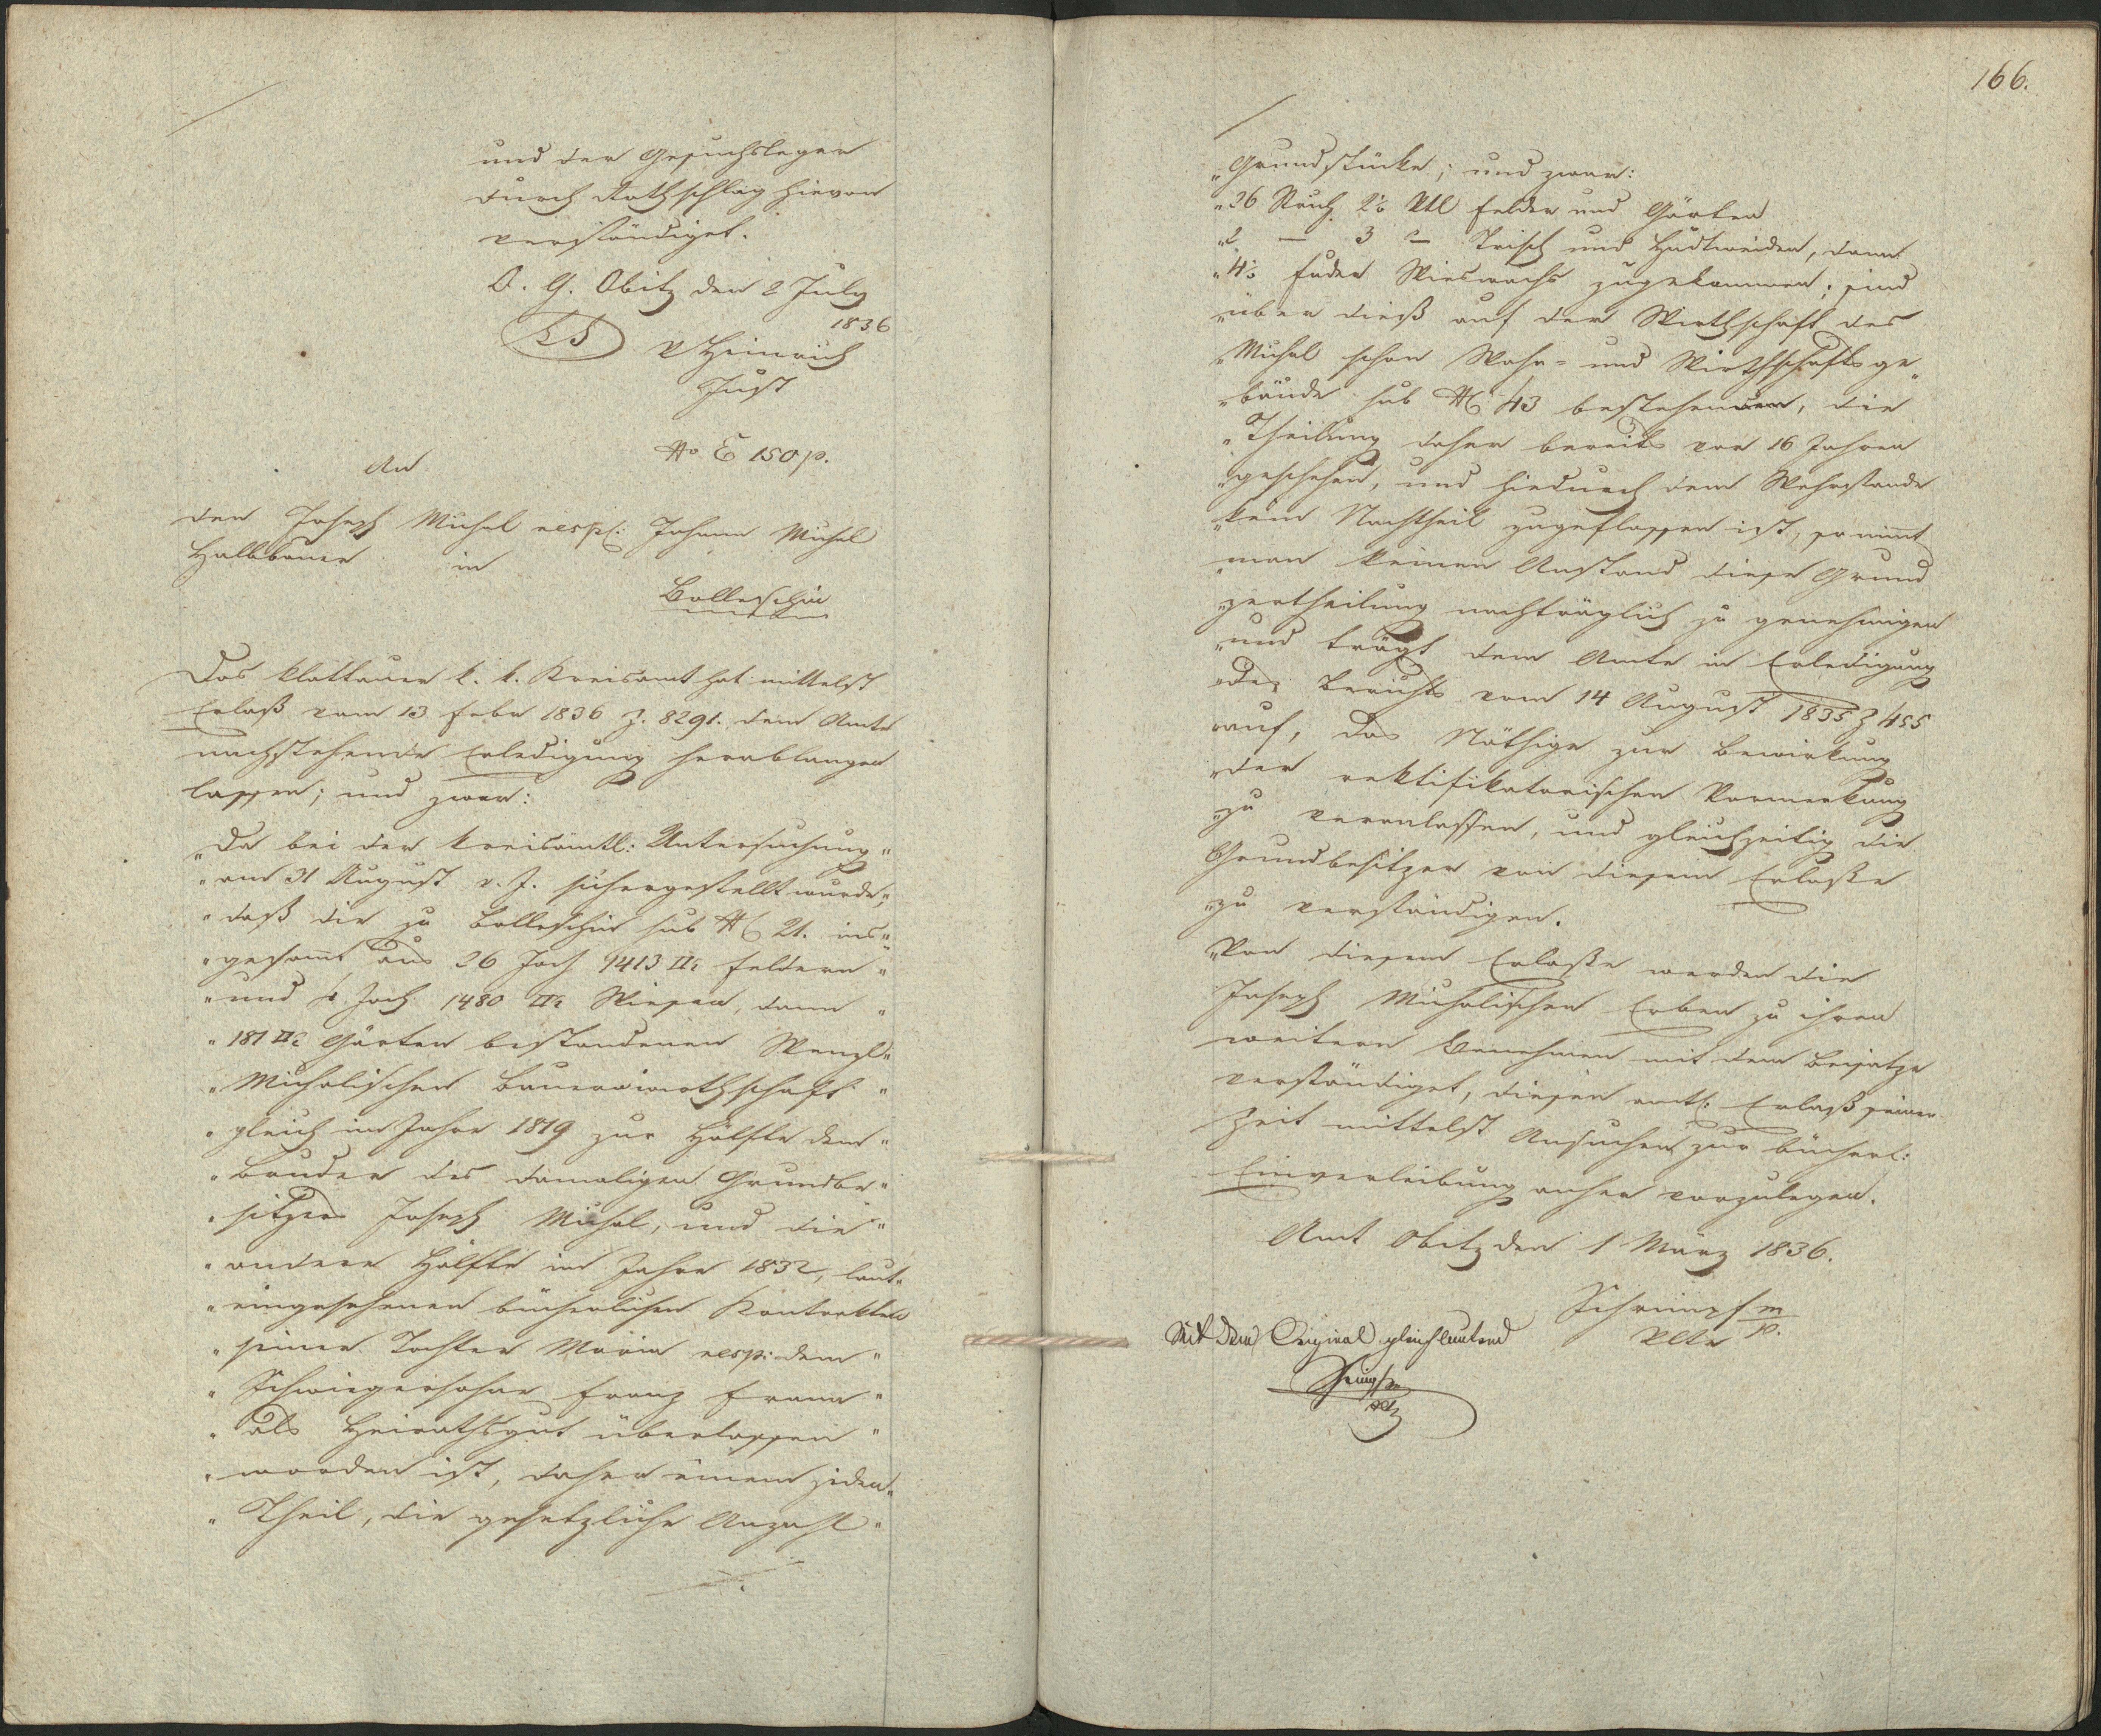 und der Gesuchsleger
durch Rathschlag hievon
verständiget.
O. G. Obitz den 2 July
1836
LS V Heinrich
Just
No E 150 p.
An
den Joseph Michal resp: Johann Michal
Halbbauer in
Polleschin
Das klattauer k. k. Kreisamt hat mittelst
Erlaß vom 13 Febr 1836 Z. 8291. dem Amte
nachstehende Erledigung herablangen
lassen; und zwar:
„Da bei der kreisämtl: Untersuchung „
„am 31 August v. J. sichergestellt wurde, „
„daß die zu Bolleschin sub NC 21. ins„
„gesammt aus 26 Joch 1413 □° Feldern „
„und Joch 1480 □° Wiesen, dann „
„181 □° Gärten bestandenen Wenzl„
„Michalischen Bauernwirthschaft „
„gleich im Jahre 1819 zur Hälfte dem „
„Bruder des damaligen Grundbe„
„sitzers Joseph Michal, und die „
„andere Hälfte im Jahre 1832, laut„
„eingesehenen bücherlichen Kontrakten
„seiner Tochter Maria resp: dem „
„Schwiegersohne Franz Frana „
„als Heirathsgut überlassen „
„worden ist, daher einem jeden„
„Theil, die gesetzliche Anzahl „
166.
„Grundstücke; und zwar:
„26 Strich 2½ Vtl Felder und Gärten
„2 — 3 — Trisch und Hudtweiden, dann
„4½ Fuder Wieswachs zugekommen; sind
„über dieß auf der Wirthschaft des
„Michal schon Wohn- und Wirthschaftsge„
„bäude sub NC 43 bestehenden, die
„Theilung daher bereits vor 16 Jahren
„geschehen, und hiedurch dem Wehrstande
„kein Nachtheil zugeflossen ist, so nimt
„man keinen Anstand diese Grund
„zertheilung nachträglich zu genehmigen
„und trägt dem Amte in Erledigung
„des Berichts vom 14 August 1835 Z 455
„auf, das Nöthige zur Bewirkung
„der rektifikatorischen Vormerkung
„zu veranlassen, und gleichzeitig die
Grundbesitzer von diesem Erlaße
„zu verständigen.
„Von diesem Erlaße werden die
Joseph Michalischen Erben zu ihren
weitern Benehmen mit dem Beisatze
verständiget, diesen amtl: Erlaß seiner
Zeit mittelst Ansuchen zur bücherl:
Einverleibung anher vorzulegen.
Amt Obitz den 1 März 1836.
Schrimpf m
p.
Mit dem Original gleichlautend